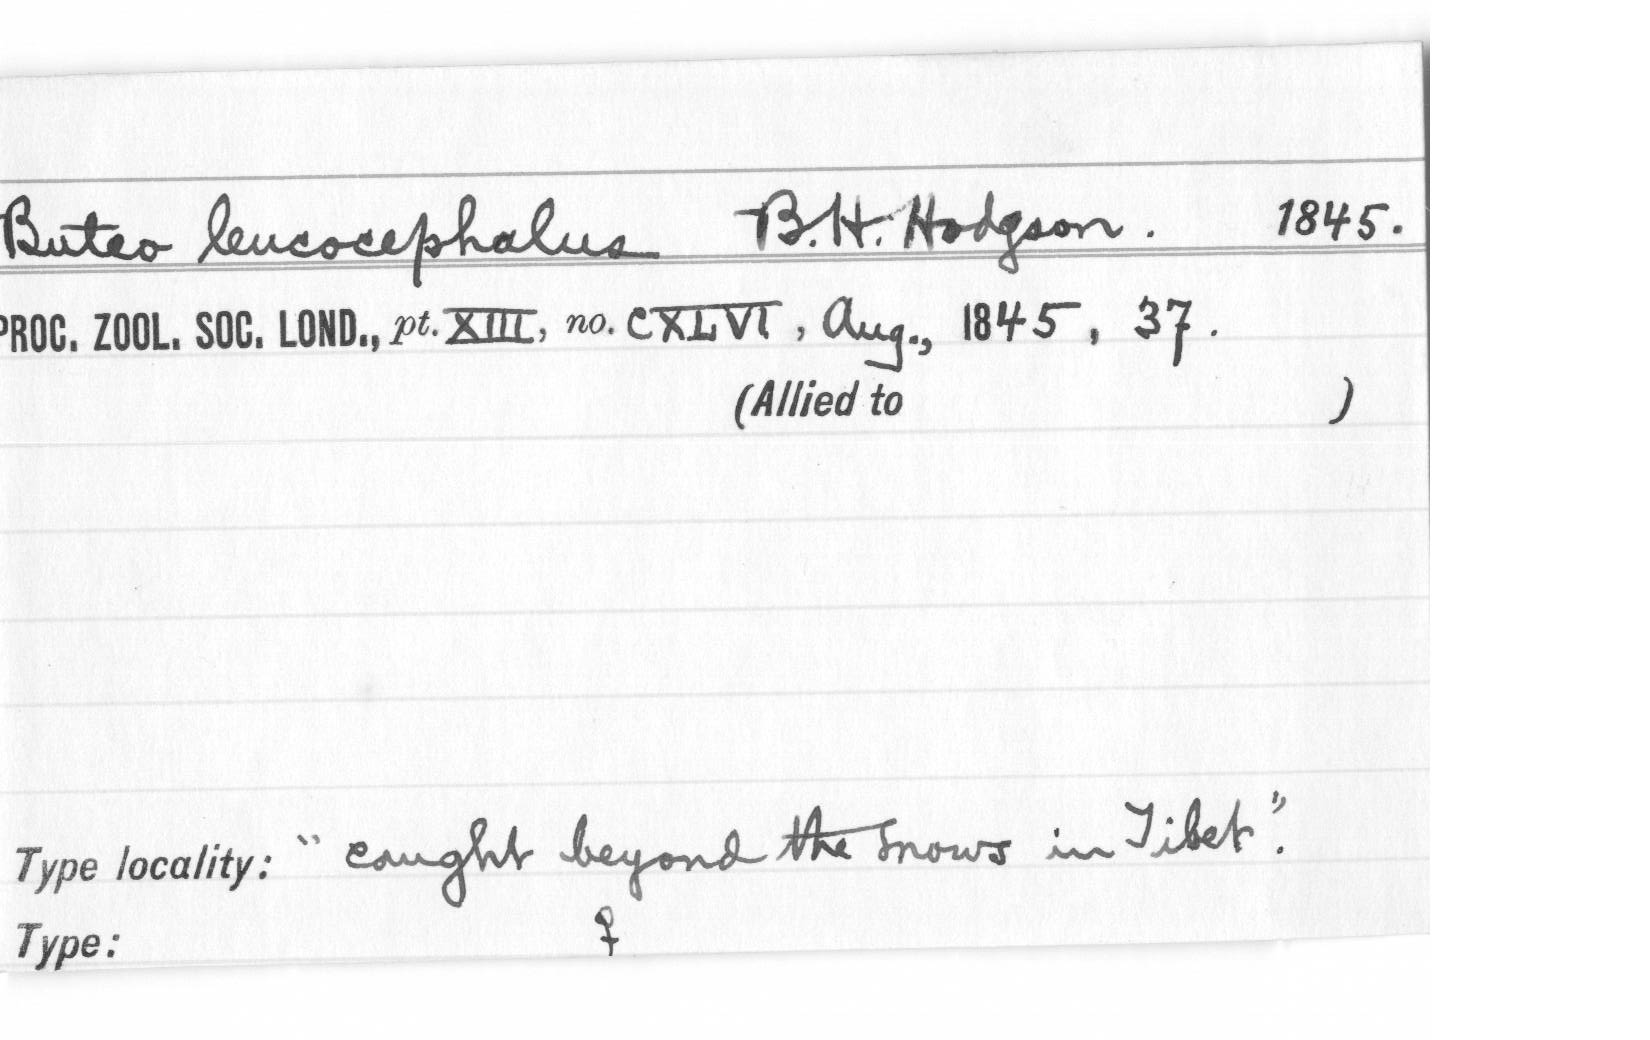 Buteo leucocephalus B.H. Hodgson. 1845.
PROC. ZOOL. SOC. LOND., pt. XIII, no. CXLVI, Aug., 1845, 37.
(Allied to )
Type locality: "caught beyond the snows in Tibet".
Type: ♀